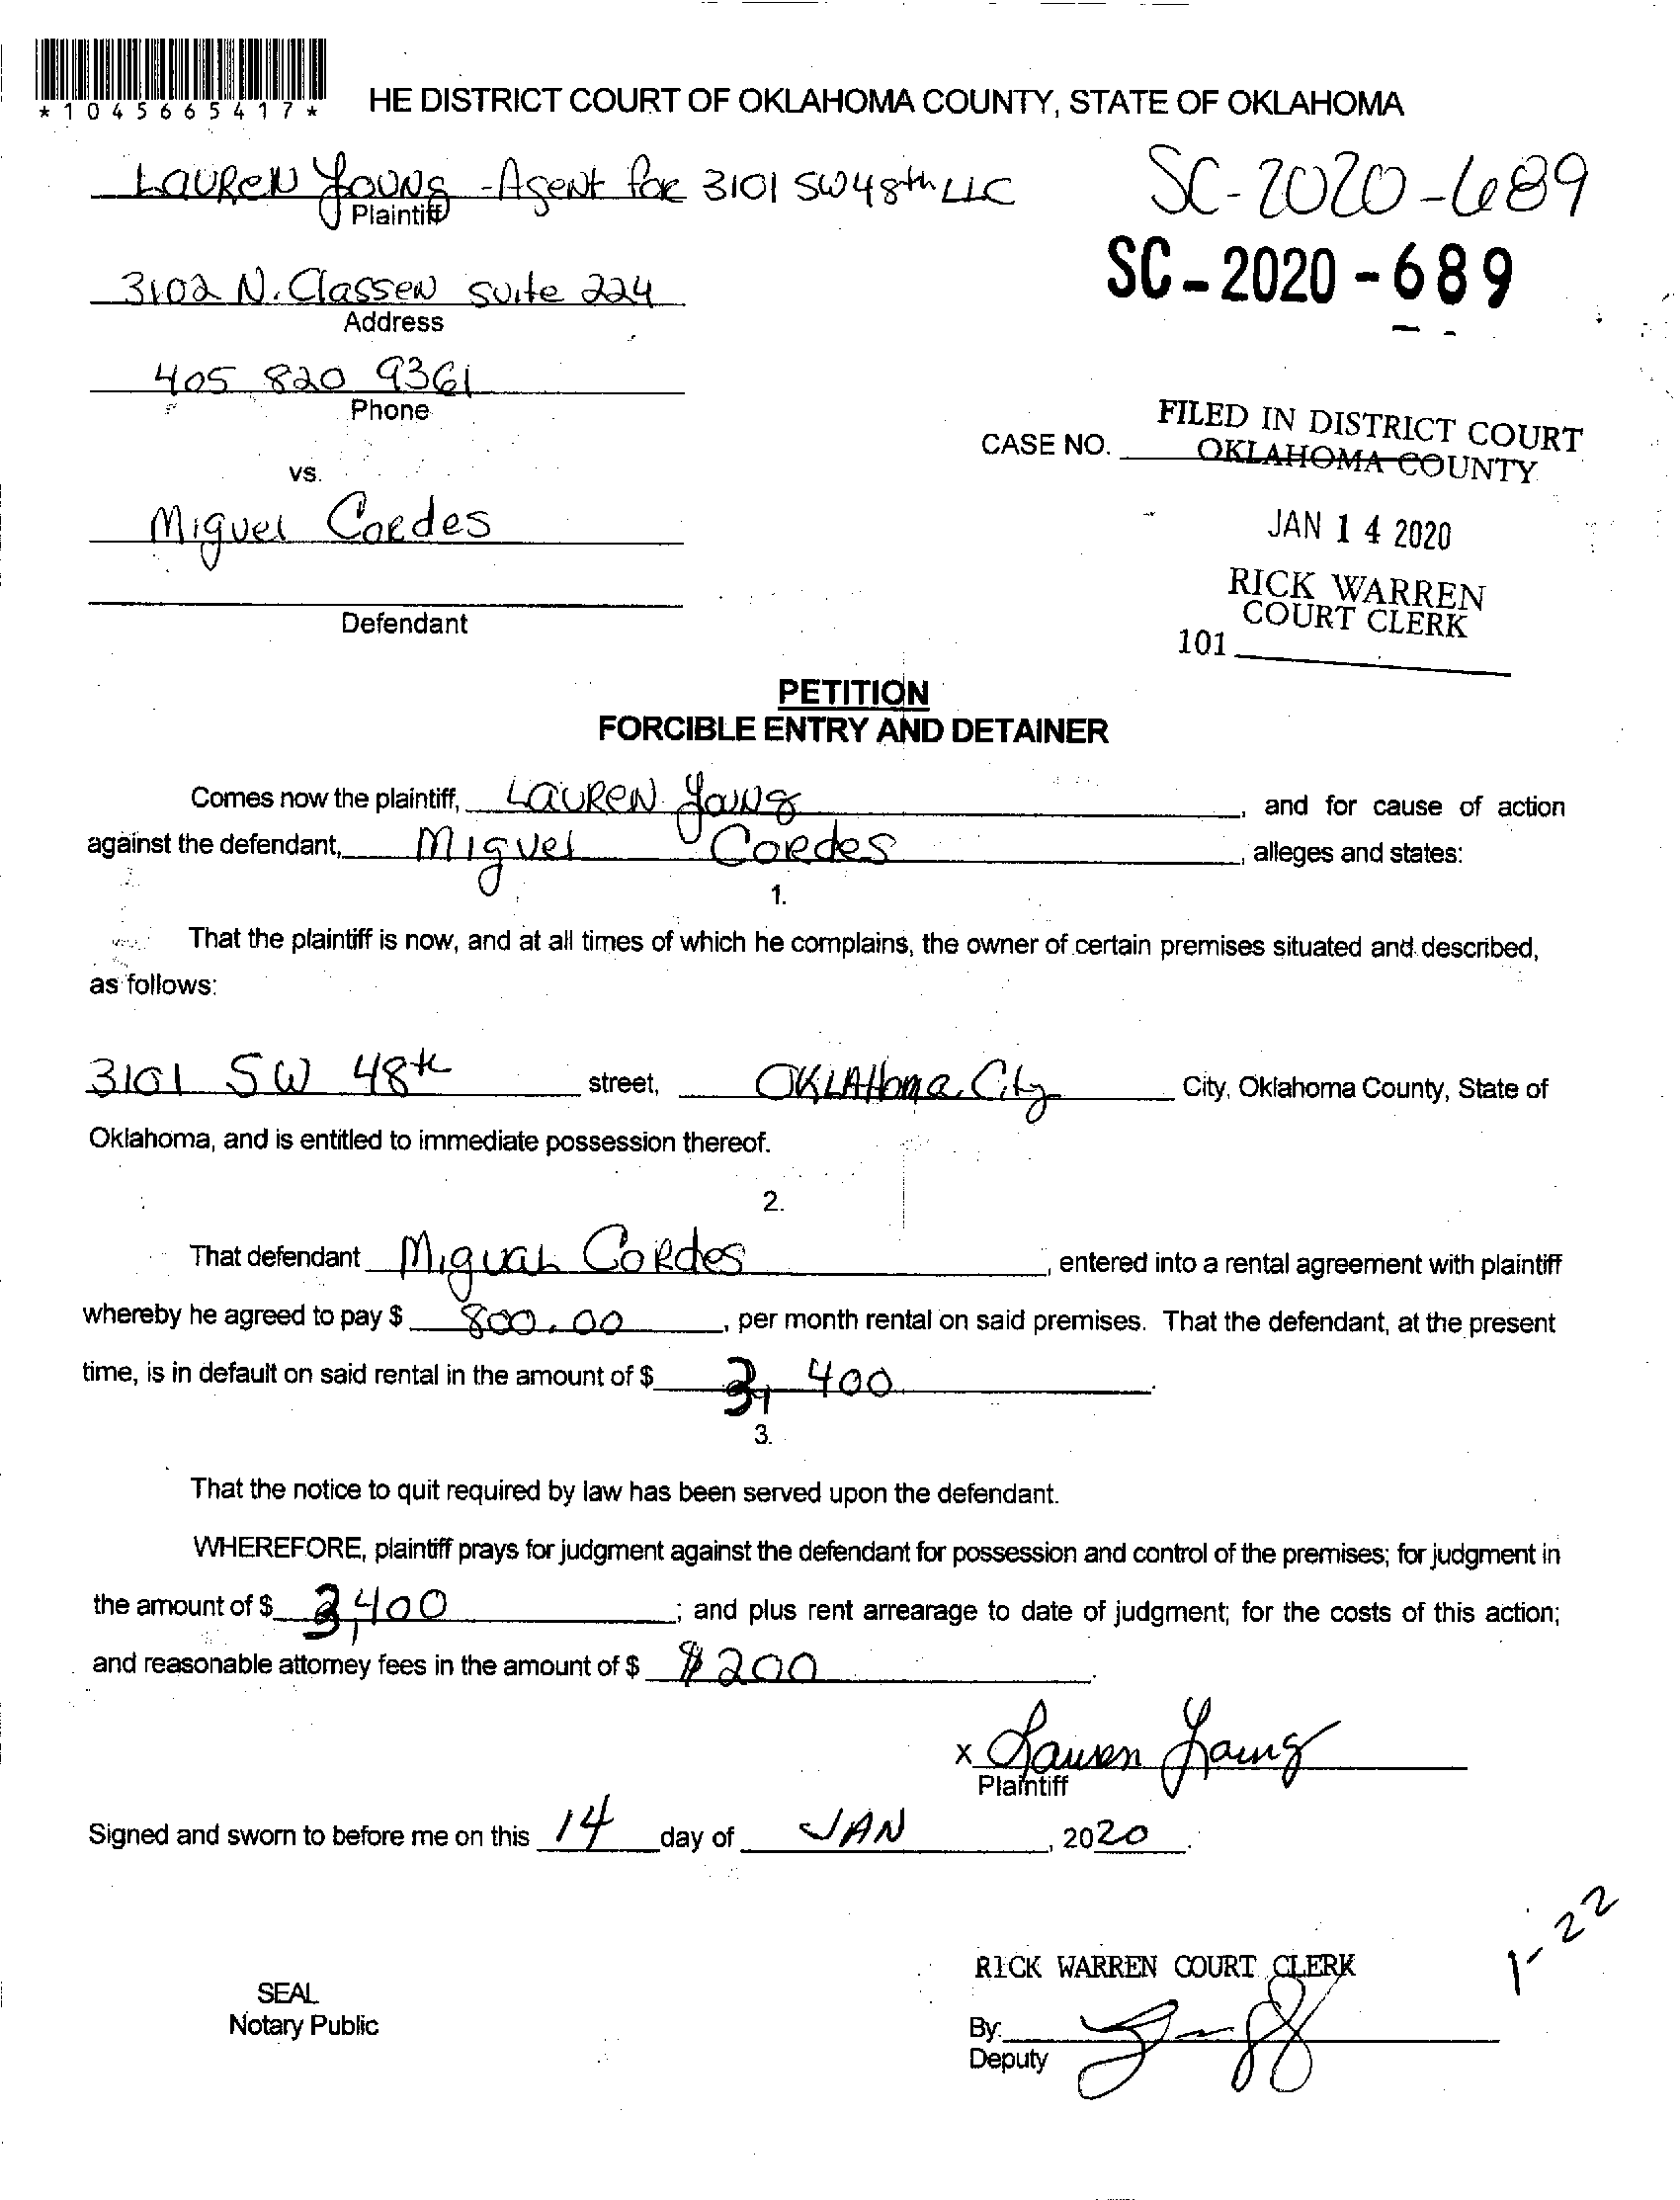 *1045665417*
HE DISTRICT COURT OF OKLAHOMA COUNTY, STATE OF OKLAHOMA
Lauren Young - Agent for 3101 SW 48th LLC
Plaintiff
SC-2020-689
SC-2020-689
3102 N. Classen suite 224
Address
405 820 9361
Phone
FILED IN DISTRICT COURT
CASE NO.
OKLAHOMA COUNTY
vs.
Miguel Cordes
JAN 14 2020
RICK WARREN
COURT CLERK
Defendant
101
PETITION
FORCIBLE ENTRY AND DETAINER
Comes now the plaintiff, Lauren Young, and for cause of action
against the defendant, Miguel Cordes, alleges and states:
1.
That the plaintiff is now, and at all times of which he complains, the owner of certain premises situated and described,
as follows:
3101 SW 48th street, Oklahoma City City, Oklahoma County, State of
Oklahoma, and is entitled to immediate possession thereof.
2.
That defendant Migual Cordes, entered into a rental agreement with plaintiff
whereby he agreed to pay $ 800.00, per month rental on said premises. That the defendant, at the present
time, is in default on said rental in the amount of $ 3,400.
3.
That the notice to quit required by law has been served upon the defendant.
WHEREFORE, plaintiff prays for judgment against the defendant for possession and control of the premises; for judgment in
the amount of $ 3,400; and plus rent arrearage to date of judgment; for the costs of this action;
and reasonable attorney fees in the amount of $ $200.
x Lauren Young
Plaintiff
Signed and sworn to before me on this 14 day of JAN, 2020.
1-22
RICK WARREN COURT CLERK
SEAL
Notary Public
By:
Deputy